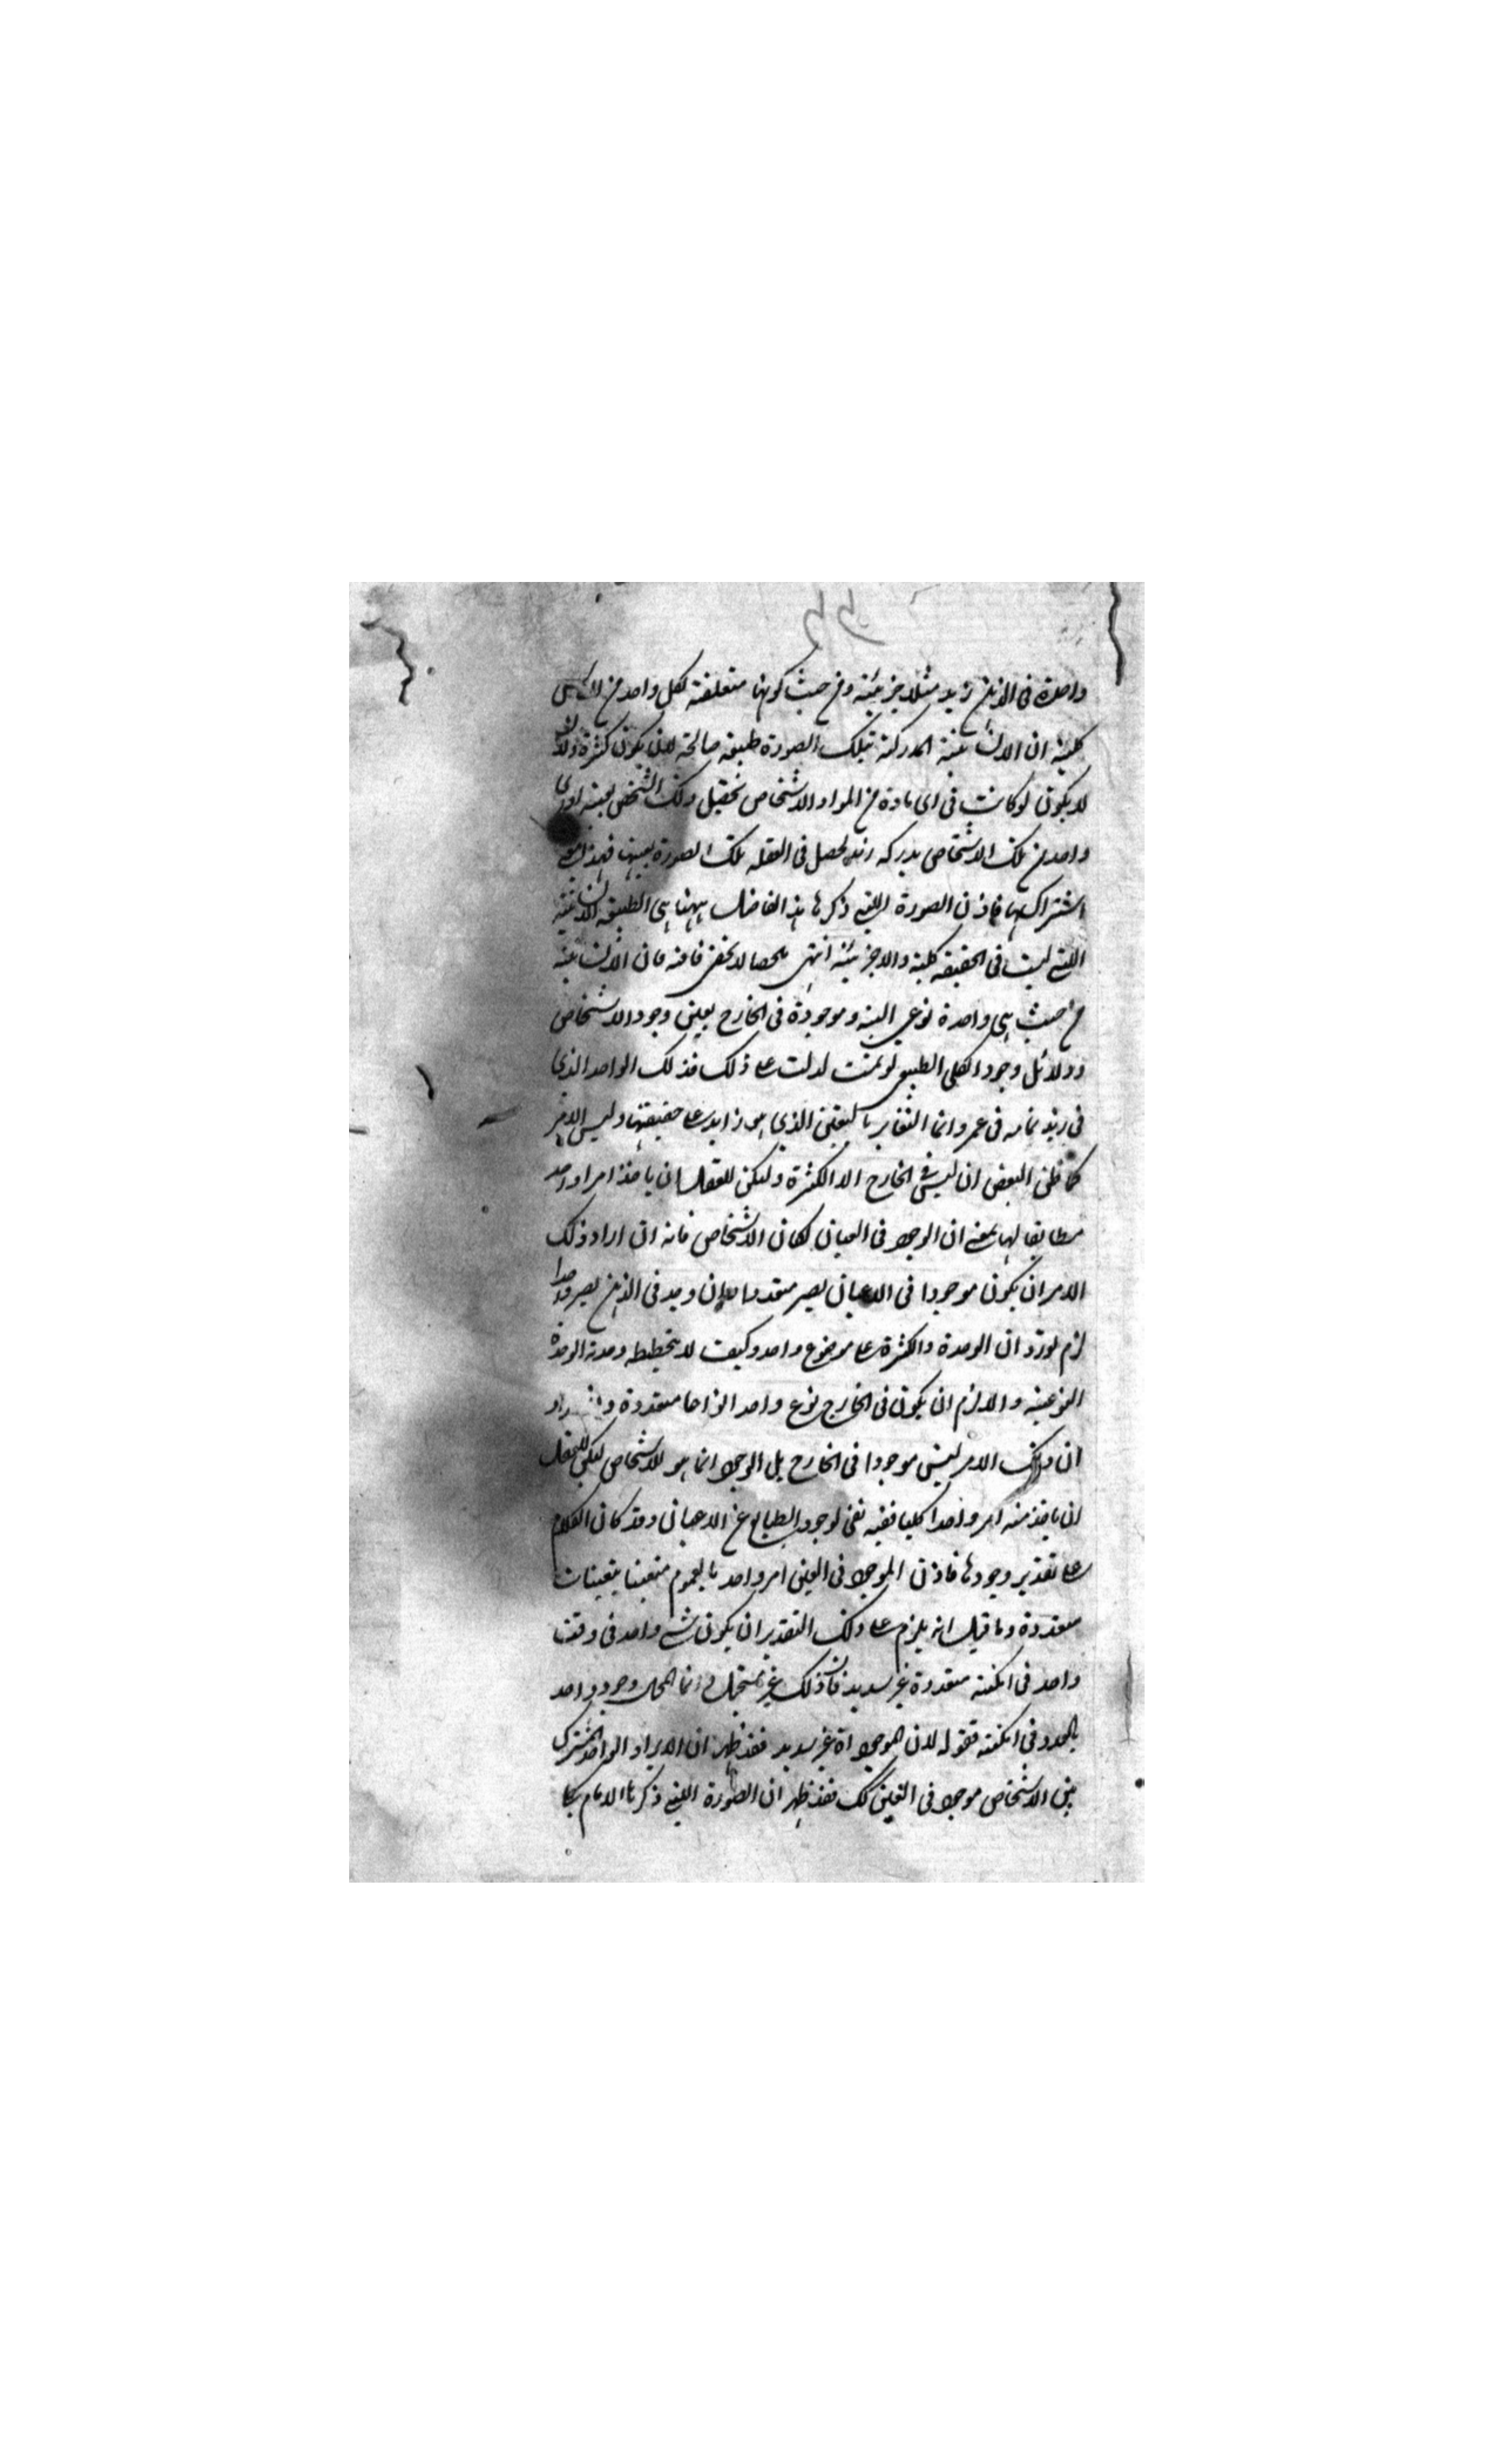 واحدة فى الذهن زيد مثلا جزئية ومن حيث كونها متعلقة لكل واحد من الناس
كلية ان الانسانية المدركة بتلك الصورة طبيعة صالحة لان يكون كثرة ولان
لا يكون لو كانت فى اى مادة من المواد الاشخاص تحصل ذلك الشخص بعينه
واحد من تلك الاشخاص يدركه زيد لحصل فى العقل تلك الصورة بعينها فهذا معنى
اشتراكها فاذن الصورة اللتى ذكرها هذا الفاضل ههنا هى الطبيعة الانسانية
اللتى ليست فى الحقيقة كلية ولا جزئية انتهى ملخصا لا يخفى فانه فان الانسانية
من حيث هى واحدة نوعى البتة وموجودة فى الخارج بعين وجود الاشخاص
ودلائل وجود الكلى الطبيعى لو تمت لدلت على ذلك فذلك الواحد الذى
فى زيد تمامه فى عمرو وانما التغاير بالتعين الذى هو زايد على حقيقتها وليس الامر
كما ظن البعض ان ليس فى الخارج الا الكثرة ولكن للعقل ان ياخذ امرا واحد
مطابقا لها بمعنى ان الوجود فى العيان لكان الاشخاص فانه ان اراد ذلك
الامر ان يكون موجودا فى الاعيان يصير متعددا وان وجد فى الذهن يصير واحدا
لزم تورد ان الوحدة والكثرة على موضوع واحد وكيف لا يتخطيطه وحدته الوحدة
النوعية والا لزم ان يكون فى الخارج نوع واحد انواعا متعددة وان اراد
ان ذلك الامر ليس موجودا فى الخارج بل الوجود انما هو للاشخاص لكن للعقل
ان ياخذ منه امر واحدا كليا ففيه نفى لوجود الطبايع عن الاعيان وقد كان الكلام
على تقدير وجودها فاذن الموجود فى العين امر واحد بالعموم متعينا بتعينات
متعددة وما قيل انه يلزم على ذلك التقدير ان يكون شى واحد فى وقت
واحد فى امكنة متعددة غير سديد فان ذلك غير مستحيل وانما المحال وجود واحد
بالعدد فى امكنة فقوله لان الموجود اه غير سديد فقد ظهر ان الايراد الواحد المشترك
بين الاشخاص موجود فى العين كك فقد ظهر ان الصورة اللتى ذكرنا الامام بكا